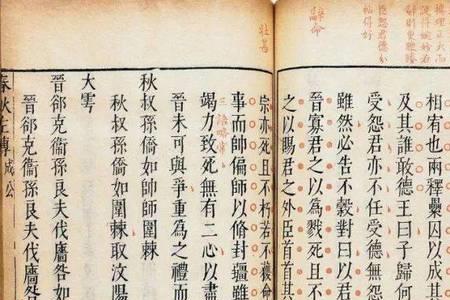 壯甚
辭命
臣怨君德分
拈得好
相宥也兩釋纍囚以成其
及其誰敢德王曰子歸何
受怨君亦不任受德無怨
雖然必告不穀對曰以君
晉寡君之以為戮死且不
之以賜君之外臣首首其
宗亦死且不朽若不獲命
事而帥偏師以脩封疆雖
竭力致死無有二心以盡
晉未可與爭重為之禮而
秋叔孫僑如帥師圍棘
秋叔孫僑如圍棘取汶陽
大雩
晉郤克衞孫良夫伐廧咎如
晉郤克衞孫良夫伐廧咎如
春秋左傳 成公